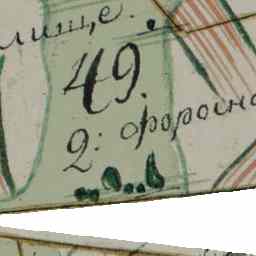 лище.
49.
2: форосна